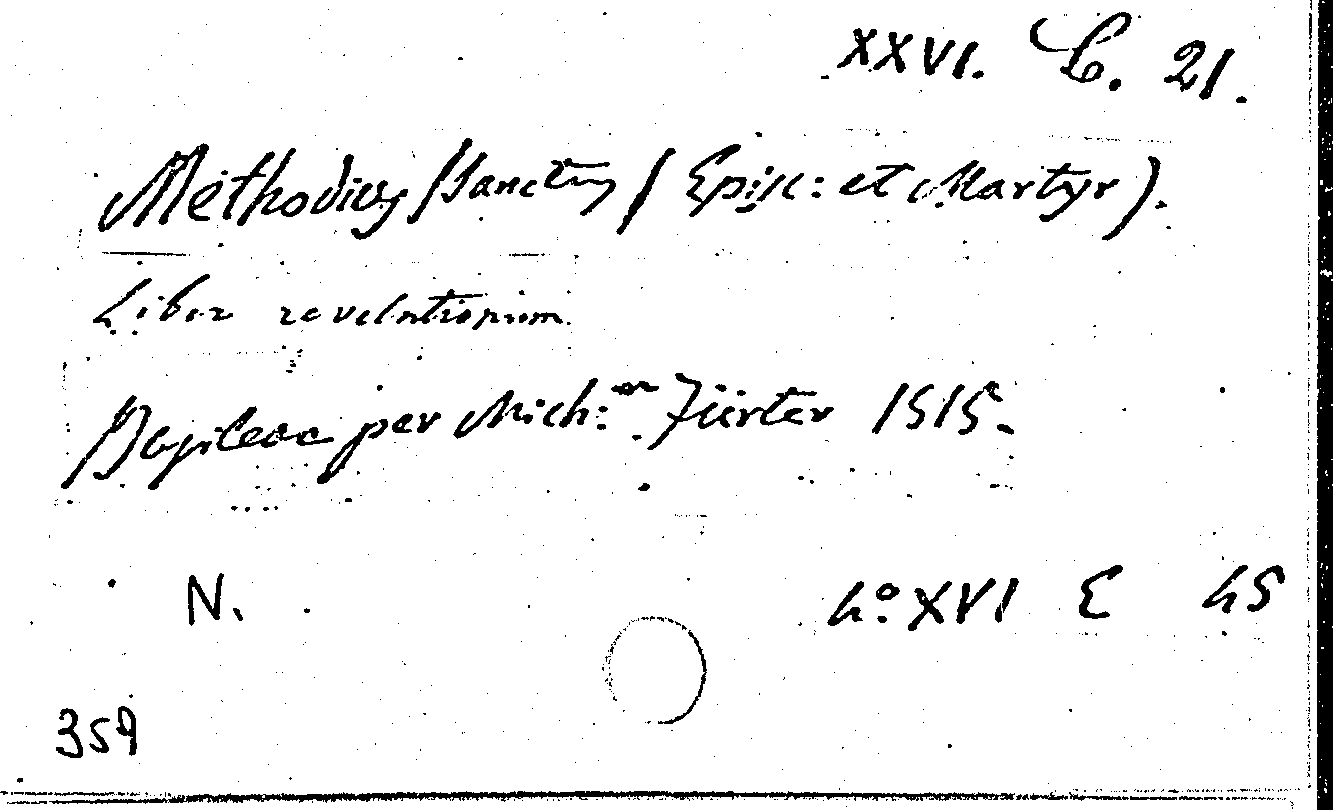 XXVI. C. 21.
Methodius /Sanctus/ Episc: et Martyr).
Liber revelationum
Basileae per Mich: Fürter 1515.
N. 4° XVI E 45
359